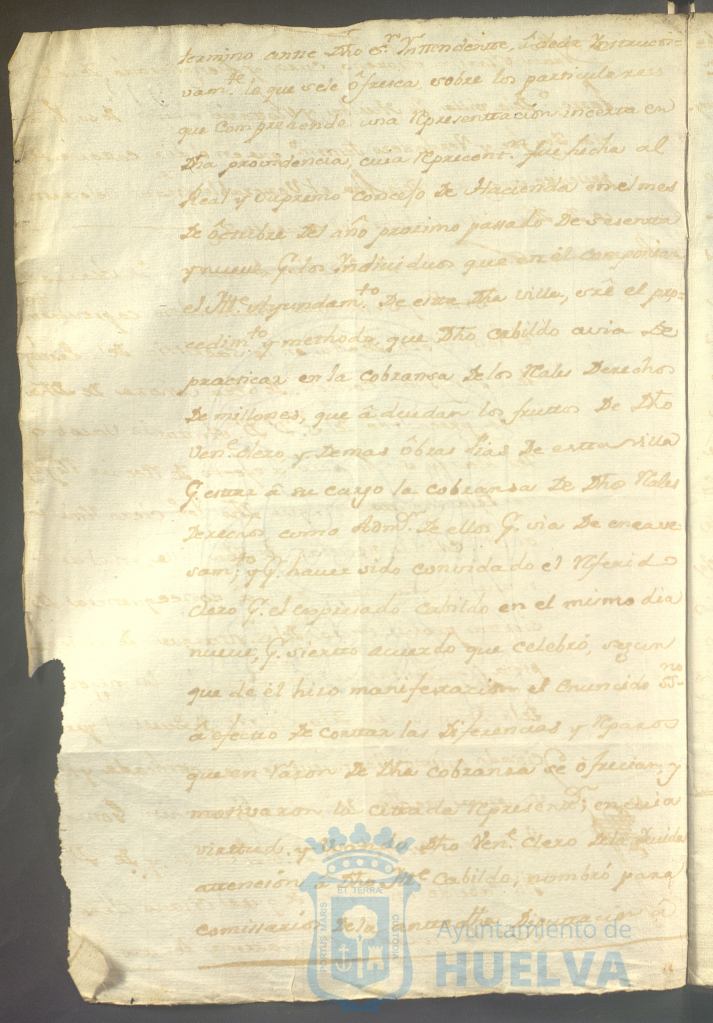 termino antte Dho S.r Ynttendentte, â decir Ynstructi=
vam.te lo que sele ofresca, sobre los particulares
que comprehende una Representtacion incerta en
Dha providencia, cuia Represent.on fue fecha al
Real y supremo Concejo De Hacienda en el mes
De Octtubre Del año proximo passado De sesentta
y nueve, G. los Yndividuos que en èl componian
el Itt.e Ayundam.to De estta Dha villa, sre el pro=
cedim.to y methodo, que Dho Cabildo avia De
practticar en la cobransa Delos Rales Derechos
De millones, que â deudan los fruttos De Dho
Ven.e Clero y Demas Obras Pias De estta villa
G. esttar â su cargo la cobransa De Dhos Rales
Derechos, como Adm.or De ellos G. via De encave=
sam.to; y G. haver sido convidado el Referido
Clero G. el expresado Cabildo en el mismo dia
nueve, G. sierto acuerdo que celebrò, segun
que de èl hiso manifestacion el Enuncido ss.no
a efectto De corttar las Diferencias y Reparos
que en Rason De Dha cobransa se ofrecian, y
mottivaron la citada Represent.on; en cuia
virttud, y usando Dho Ven.e Clero Dela Devida
attencion â Dho Itt.e Cabildo, nombrò para
comissarios Dela Diputtacion â
PORTUS MARIS
ET TERRAE
CUSTODIA
Ayuntamiento de
HUELVA